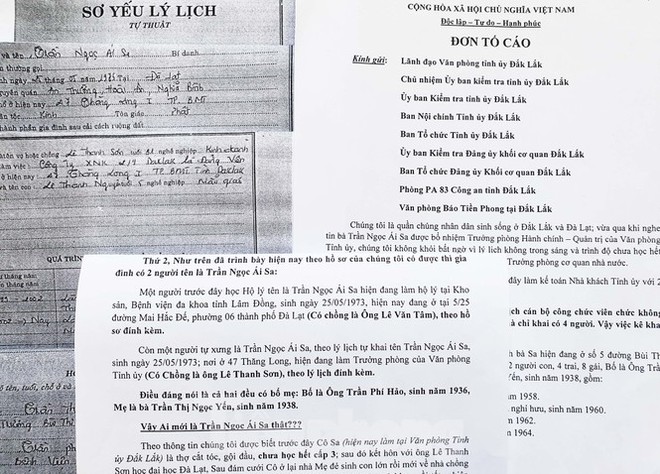 SƠ YẾU LÝ LỊCH
TỰ THUẬT
Trần Ngọc Ái Sa
Bí danh
tên thường gọi
năm 1975 Tại Đà Lạt
An Thường, Hoài Ân, Nghĩa Bình
ở hiện nay 47 Thăng Long I TP. BMT
tộc: Kinh
Phật
thành phần gia đình sau cải cách ruộng đất
Lê Thanh Sơn tuổi nghề nghiệp Kinh doanh
làm việc: Công Ty XNK 2/9 Daklak là Đảng Viên
ở hiện nay 47 Thăng Long I TP. BMT Tỉnh Daklak
và tên con: Lê Thanh Nguyên tuổi 5 nghề nghiệp Mẫu giáo
QUÁ TRÌN
Từ tháng
tên, tuổi, chỗ ở và
CỘNG HÒA XÃ HỘI CHỦ NGHĨA VIỆT NAM
Độc lập – Tự do – Hạnh phúc
ĐƠN TỐ CÁO
Kính gửi: Lãnh đạo Văn phòng tỉnh ủy Đắk Lắk
Chủ nhiệm Ủy ban kiểm tra tỉnh ủy Đắk Lắk
Ủy ban Kiểm tra tỉnh ủy Đắk Lắk
Ban Nội chính Tỉnh ủy Đắk Lắk
Ban Tổ chức Tỉnh ủy Đắk Lắk
Ủy ban kiểm tra Đảng ủy khối cơ quan Đắk Lắk
Ban Tổ chức Đảng ủy Khối cơ quan Đắk Lắk
Phòng PA 83 Công an tỉnh Đắk Lắk
Văn phòng Báo Tiền Phong tại Đắk Lắk
Chúng tôi là quần chúng nhân dân sinh sống ở Đắk Lắk và Đà Lạt; vừa qua khi nghe
tin bà Trần Ngọc Ái Sa được bổ nhiệm Trưởng phòng Hành chính – Quản trị của Văn phòng
Tỉnh ủy, chúng tôi không khỏi bất ngờ vì lý lịch không trong sáng và trình độ chưa học hết
Trưởng phòng cơ quan nhà nước.
đây làm kế toán Nhà khách Tỉnh ủy với 2
lịch cán bộ công chức viên chức không
à chỉ khai có 4 người. Vậy việc kê khai
bà Sa hiện đang ở số 5 đường Bùi Th
2 người con, 4 trai, 8 gái, Bố là Ông Tr
Yến, sinh năm 1938, gồm:
1958.
nghỉ hưu, sinh năm 1960.
1962.
1964.
Thứ 2, Như trên đã trình bày hiện nay theo hồ sơ của chúng tôi có được thì gia
đình có 2 người tên là Trần Ngọc Ái Sa:
Một người trước đây học Hộ lý tên là Trần Ngọc Ái Sa hiện đang làm hộ lý tại Kho
sản, Bệnh viện đa khoa tỉnh Lâm Đồng, sinh ngày 25/05/1973, hiện nay đang ở tại 5/25
đường Mai Hắc Đế, phường 06 thành phố Đà Lạt (Có chồng là Ông Lê Văn Tâm), theo hồ
sơ đính kèm.
Còn một người tự xưng là Trần Ngọc Ái Sa, theo lý lịch tự khai tên Trần Ngọc Ái Sa,
sinh ngày 25/05/1973; nơi ở 47 Thăng Long, hiện đang làm Trưởng phòng của Văn phòng
Tỉnh ủy (Có Chồng là ông Lê Thanh Sơn), theo lý lịch đính kèm.
Điều đáng nói là cả hai đều có bố mẹ: Bố là Ông Trần Phi Hảo, sinh năm 1936,
Mẹ là bà Trần Thị Ngọc Yến, sinh năm 1938.
Vậy Ai mới là Trần Ngọc Ái Sa thật???
Theo thông tin chúng tôi được biết trước đây Cô Sa (hiện nay làm tại Văn phòng Tỉnh
ủy Đắk Lắk) là thợ cắt tóc, gội đầu, chưa học hết cấp 3; sau đó kết hôn với ông Lê Thanh
Sơn học đại học Đà Lạt, Sau đám cưới Cô ở lại nhà Mẹ đẻ sinh con lớn rồi mới về nhà chồng